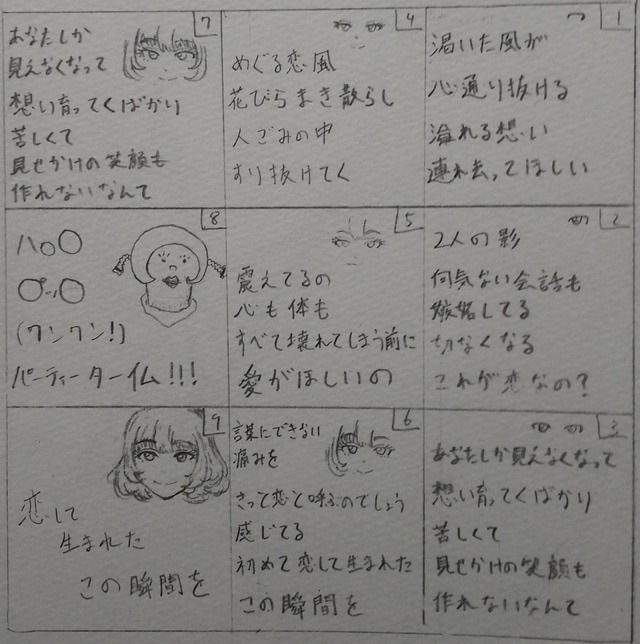 1
渇いた風が
心通り抜ける
溢れる想い
連れ去ってほしい
2
2人の影
何気ない会話も
嫉妬してる
切なくなる
これが恋なの?
3
あなたしか見えなくなって
想い育ってくばかり
苦しくて
見せかけの笑顔も
作れないなんて
4
めぐる恋風
花びらまき散らし
人ごみの中
すり抜けてく
5
震えてるの
心も体も
すべて壊れてしまう前に
愛がほしいの
6
言葉にできない
痛みを
きっと恋と呼ぶのでしょう
感じてる
初めて恋して生まれた
この瞬間を
7
あなたしか
見えなくなって
想い育ってくばかり
苦しくて
見せかけの笑顔も
作れないなんて
8
ハロ〇
プッ〇
(ワンワン!)
パーティータイム!!!
9
恋して
生まれた
この瞬間を